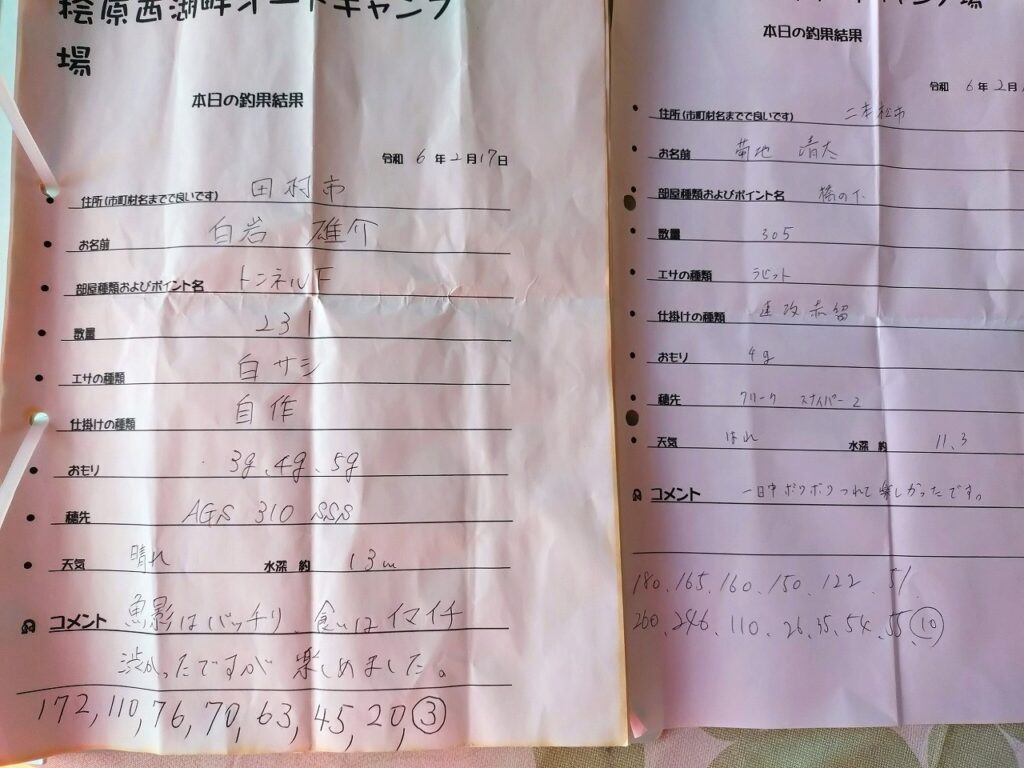 桧原西湖畔オートキャンプ
場
本日の釣果結果
令和 6年2月17日
住所(市町村名までで良いです) 田村市
お名前 白岩 雄介
部屋種類およびポイント名 トンネルF
数量 231
エサの種類 白サシ
仕掛けの種類 自作
おもり 3g、4g、5g
穂先 AGS 310 SSS
天気 晴れ 水深 約 13m
コメント 魚影はバッチリ、食いはイマイチ
渋かったですが 楽しめました。
172, 110, 76, 70, 63, 45, 20, ③
本日の釣果結果
令和 6年2月
住所(市町村名までで良いです) 二本松市
お名前 菊地 清太
部屋種類およびポイント名 橋の下
数量 305
エサの種類 ラビット
仕掛けの種類
おもり 4g
穂先 クリーク スナイパー2
天気 はれ 水深 約 11.3
コメント 一日中ポツポツつれて楽しかったです。
180、165、160、150、122、51
260、246、110、26、35、54、55 ⑩